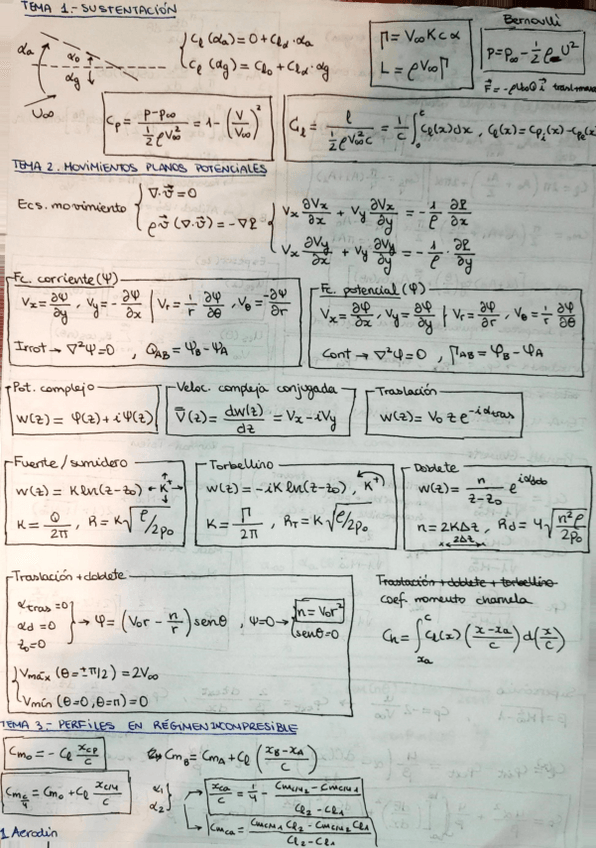 TEMA 1.- SUSTENTACIÓN
αa α0 αg U∞
{ Cl (αa) = 0 + Clα · αa
Cl (αg) = Cl0 + Clα · αg
Γ = V∞ K c α
L = ρ V∞ Γ
Bernoulli
p = p∞ - 1/2 ρ U²
Cp = (p - p∞) / (1/2 ρ V∞²) = 1 - (V/V∞)²
Cl = l / (1/2 ρ V∞² c) = 1/c ∫₀ᶜ Cl(x) dx , Cl(x) = Cpi(x) - Cpe(x)
TEMA 2. MOVIMIENTOS PLANOS POTENCIALES
Ecs. movimiento { ∇·v⃗ = 0
ρ v⃗ (∇·v⃗) = -∇P
{ Vx ∂Vx/∂x + Vy ∂Vx/∂y = - 1/ρ ∂P/∂x
Vx ∂Vy/∂x + Vy ∂Vy/∂y = - 1/ρ · ∂P/∂y
Fc. corriente (Ψ)
Vx = ∂Ψ/∂y , Vy = - ∂Ψ/∂x | Vr = 1/r ∂Ψ/∂θ , Vθ = - ∂Ψ/∂r
Irrot → ∇²Ψ = 0 , QAB = ΨB - ΨA
Fc. potencial (φ)
Vx = ∂φ/∂x , Vy = ∂φ/∂y | Vr = ∂φ/∂r , Vθ = 1/r ∂φ/∂θ
Cont → ∇²φ = 0 , ΓAB = φB - φA
Pot. complejo
W(z) = φ(z) + i Ψ(z)
Veloc. compleja conjugada
V̄(z) = dw(z)/dz = Vx - iVy
Traslación
W(z) = V0 z e^(-iαtras)
Fuente/sumidero
W(z) = K ln(z - z0) ← K →
K = Q/2π , R = K √(ρ/2p0)
Torbellino
W(z) = -iK ln(z - z0) , K⁺)
K = Γ/2π , RT = K √(ρ/2p0)
Doblete
W(z) = n/(z - z0) e^(iαdob)
n = 2KΔz , Rd = 4 √(n²ρ/2p0)
2Δz
Traslación + doblete
αtras = 0
αd = 0
z0 = 0 } → Ψ = (V0r - n/r) senθ , Ψ=0 → { n = V0r²
senθ = 0
{ Vmáx (θ = ±π/2) = 2V∞
Vmín (θ = 0, θ = π) = 0
Traslación + doblete + torbellino
coef. momento charnela
Ch = ∫xaᶜ Cl(x) ((x - xa)/c) d(x/c)
TEMA 3.- PERFILES EN RÉGIMEN INCOMPRESIBLE
Cm0 = - Cl xcp/c
CmB = CmA + Cl ((xB - xA)/c)
α1
α2 } → xca/c = 1/4 - (CmcM2 - CmcM1)/(Cl2 - Cl1)
Cmca = (CmcM1 Cl2 - CmcM2 Cl1)/(Cl2 - Cl1)
1 Aerodin